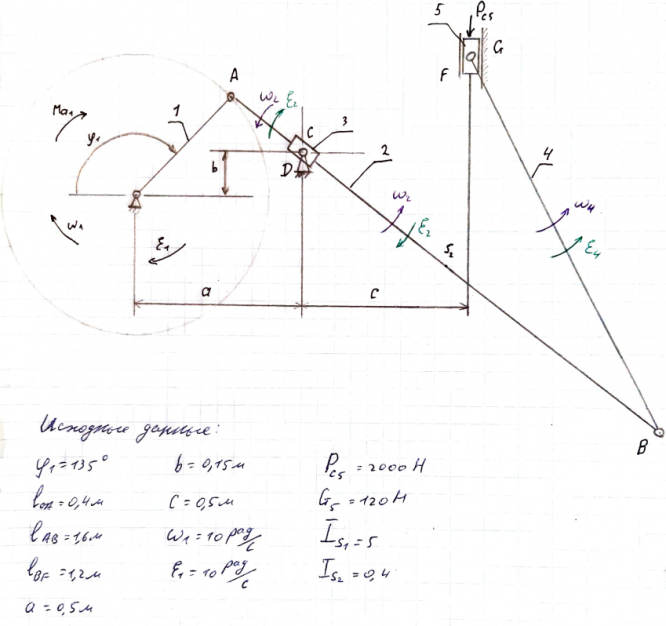 5
Pc5
G
F
A
ω2
ε2
Ma1
1
C
3
φ1
b
D
2
4
ω2
ε2
ω4
ε4
ω1
ε1
S2
a
c
B
Исходные данные:
φ1=135° b=0,15м Pc5=2000Н
lOA=0,4м C=0,5м G5=120Н
lAB=1,6м ω1=10 рад/с IS1=5
lBF=1,2м ε1=10 рад/с IS2=0,4
a=0,5м